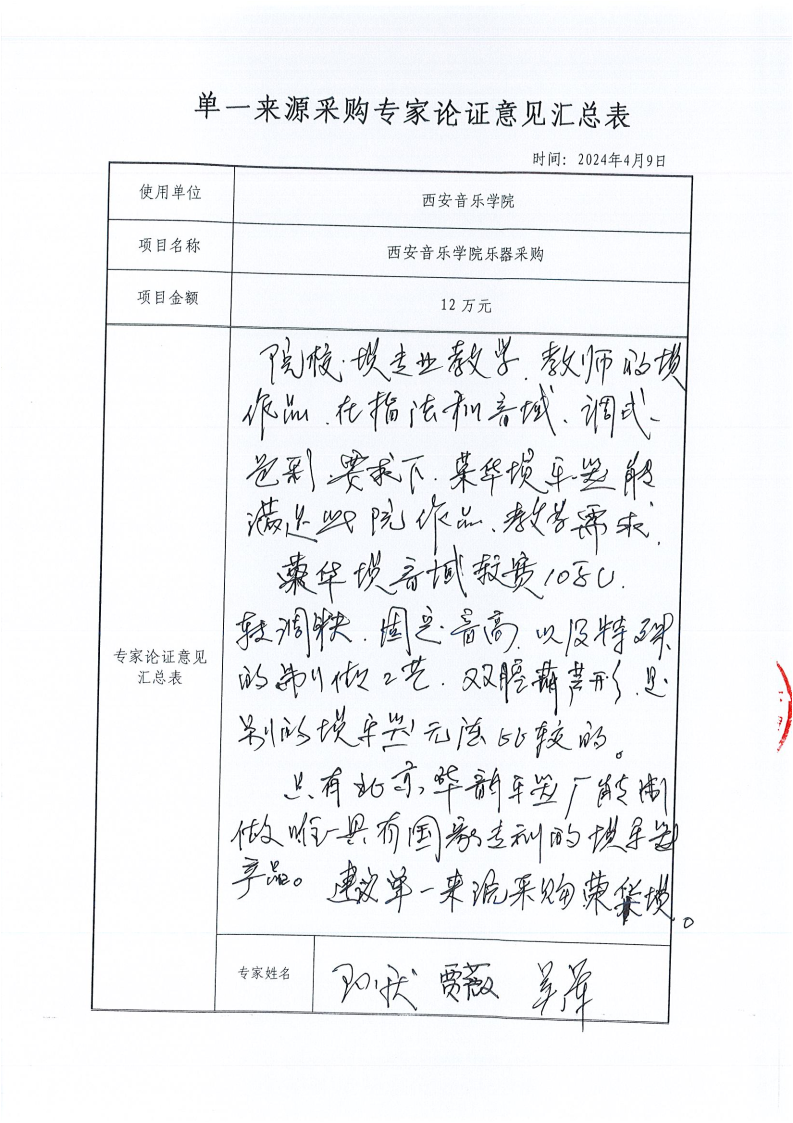 单一来源采购专家论证意见汇总表
时间：2024年4月9日
使用单位 西安音乐学院
项目名称 西安音乐学院乐器采购
项目金额 12万元
专家论证意见
汇总表
院校埙专业教学、教师的埙
作品、在指法和音域、调式、
色彩要求下、荣华埙乐器能
满足 院作品、教学需求、
荣华埙音域较宽10
转调快、固定音高、以及特殊
的制做工艺、双腔葫芦形、是
别的埙乐器无法比较的。
只有北京华韵乐器厂能制
做唯一具有国家专利的埙乐器
产品。建议单一来源采购荣华埙。
专家姓名 贾薇